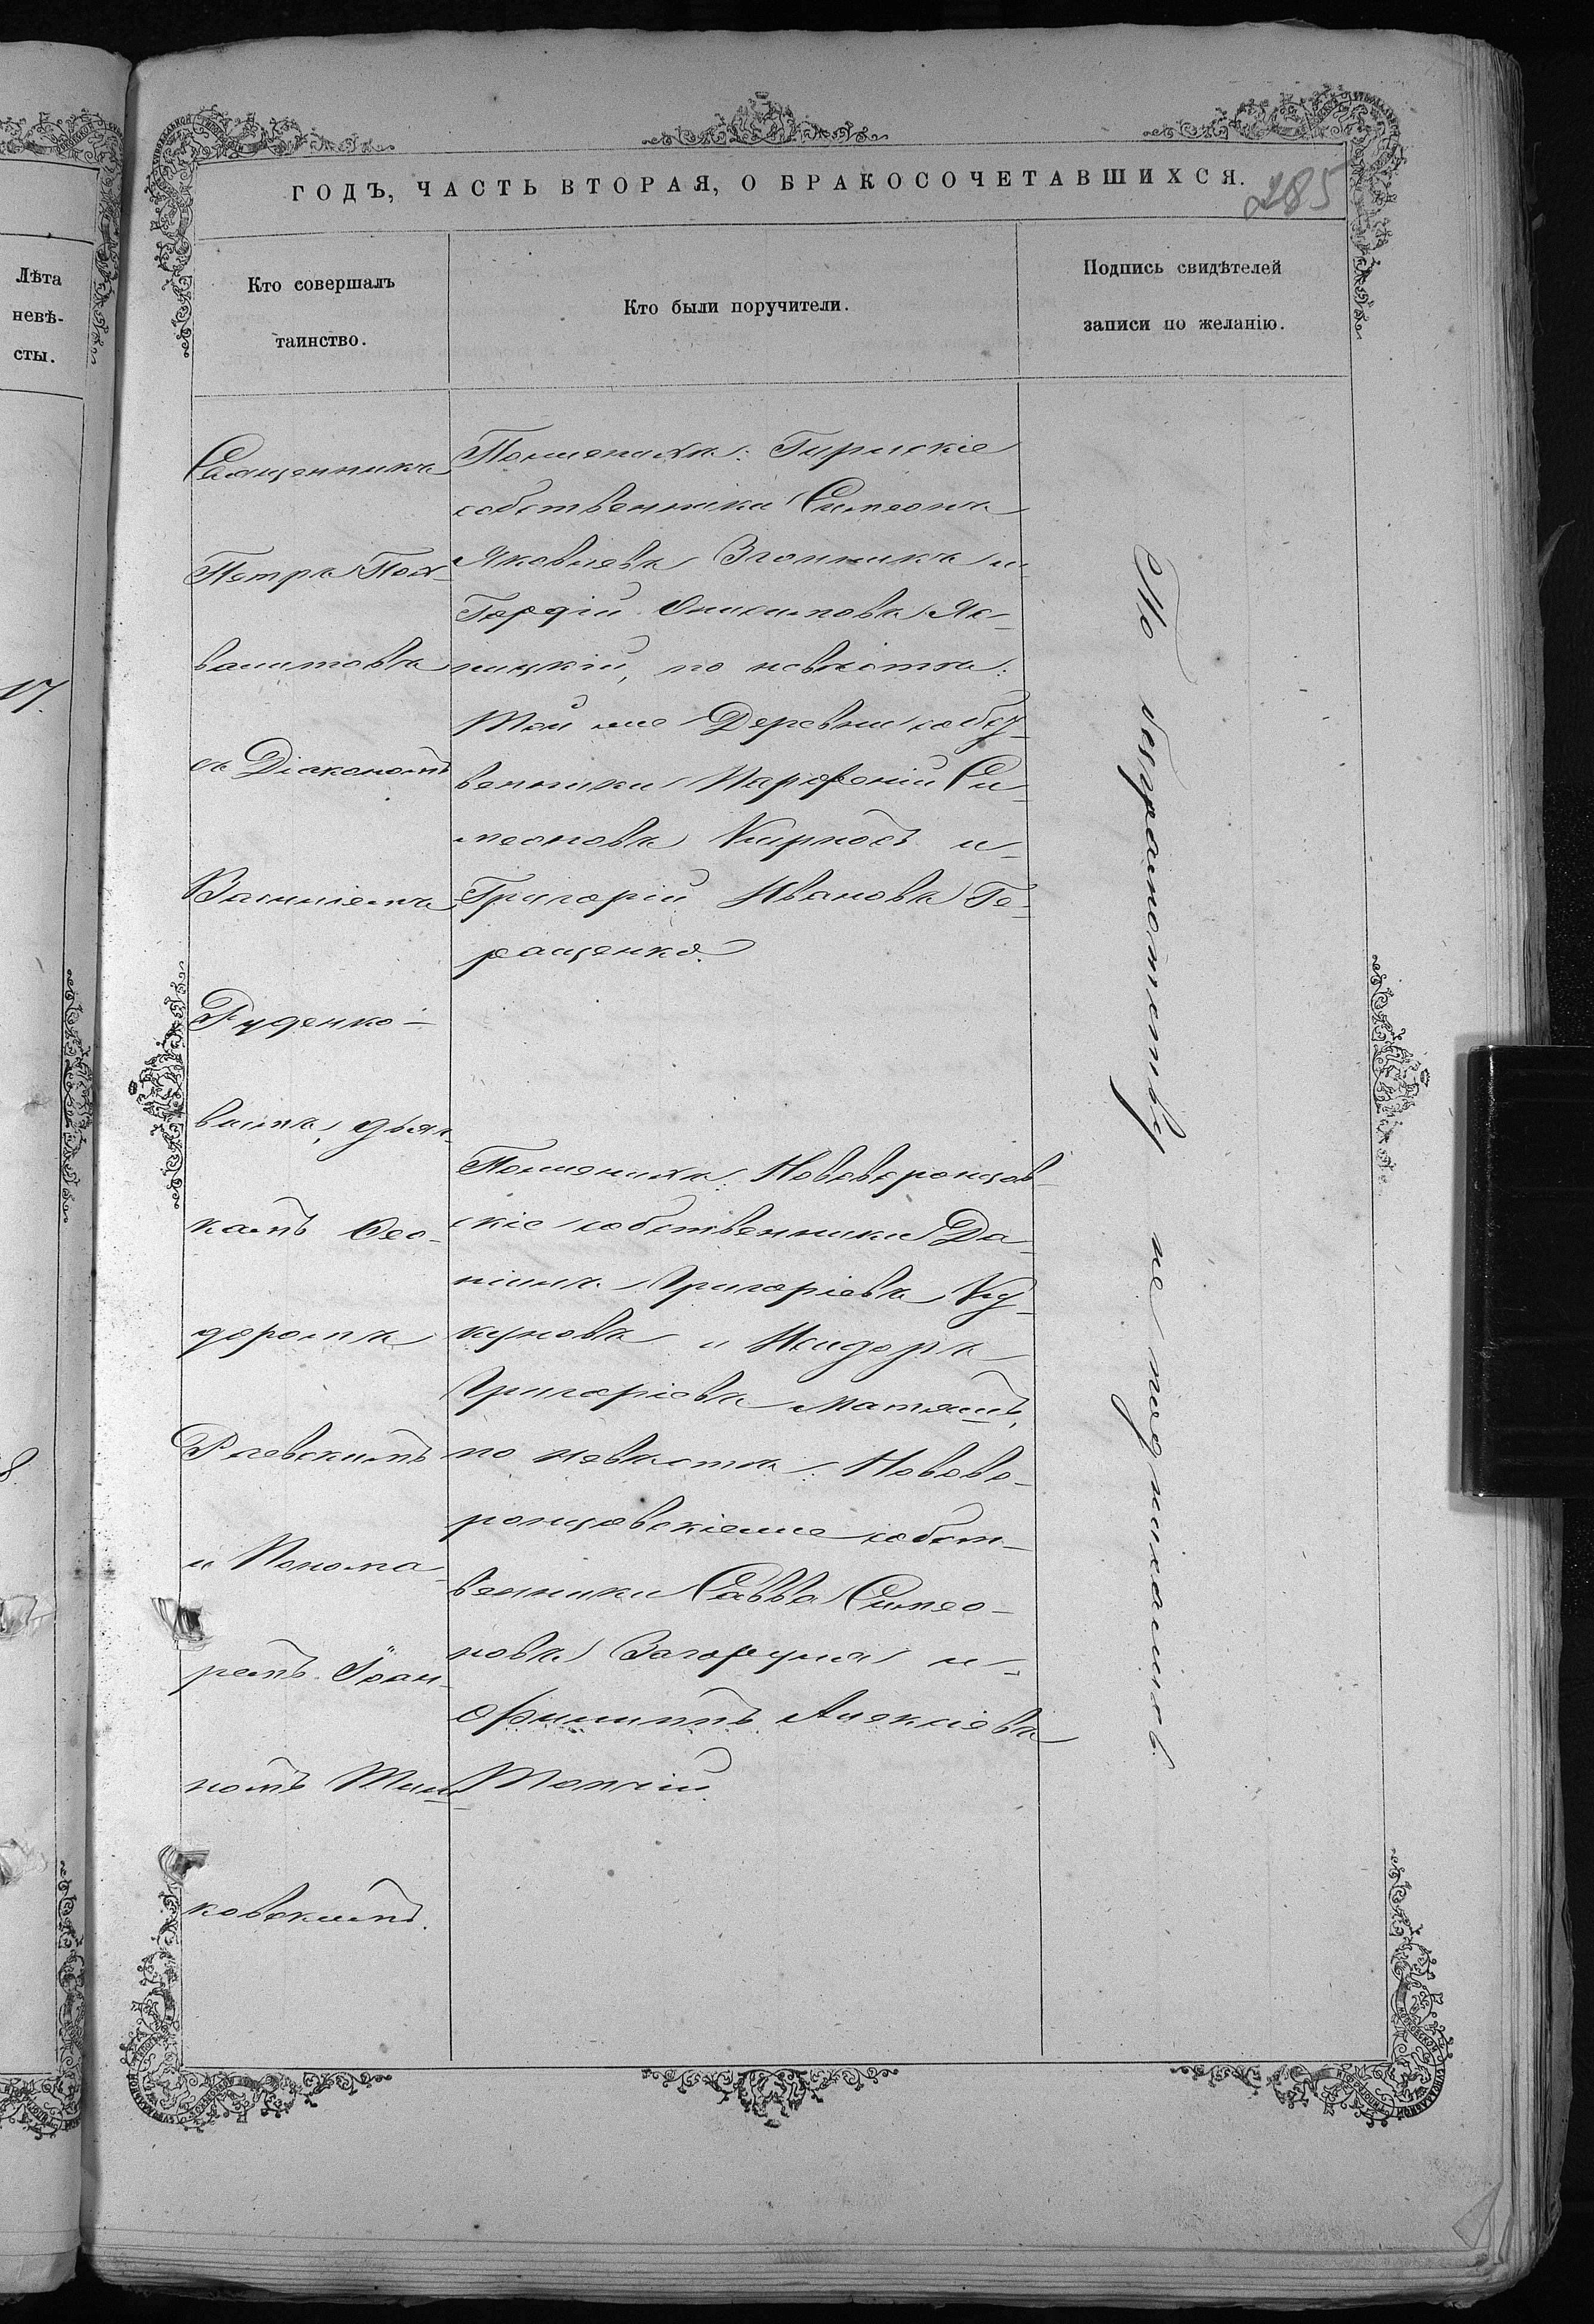 Лѣта
невѣ-
сты.
17.
8
ГОДЪ, ЧАСТЬ ВТОРАЯ, О БРАКОСОЧЕТАВШИХСЯ.
285
Кто совершалъ
таинство.
Кто были поручители.
Подпись свидѣтелей
записи по желанію.
Священникъ
Петръ Пох-
валитовъ
съ Діакономъ
Василіемъ
Руденко-
вымъ, дьяч-
комъ Ѳео-
доромъ
Раевскимъ
и Понома-
ремъ Іоан-
номъ
ковскимъ.
По женихѣ:
собственники Симеонъ
Яковлевъ и
Гордій
по невѣстѣ:
Той же Деревни собст-
венники Парфеній Си-
меоновъ Кирносъ и
Григорій Ивановъ Ге-
ращенко.
По женихѣ: Нововоронцов-
скіе собственники Да-
ніилъ Григоріевъ Ку-
куновъ и Исидоръ
Григоріевъ Матяшъ,
по невѣстѣ: Нововo-
ронцовскіеже собст-
венники Савва Симео-
новъ Загоруля и
Филиппъ Алексіевъ
По неграмотству не подписались.